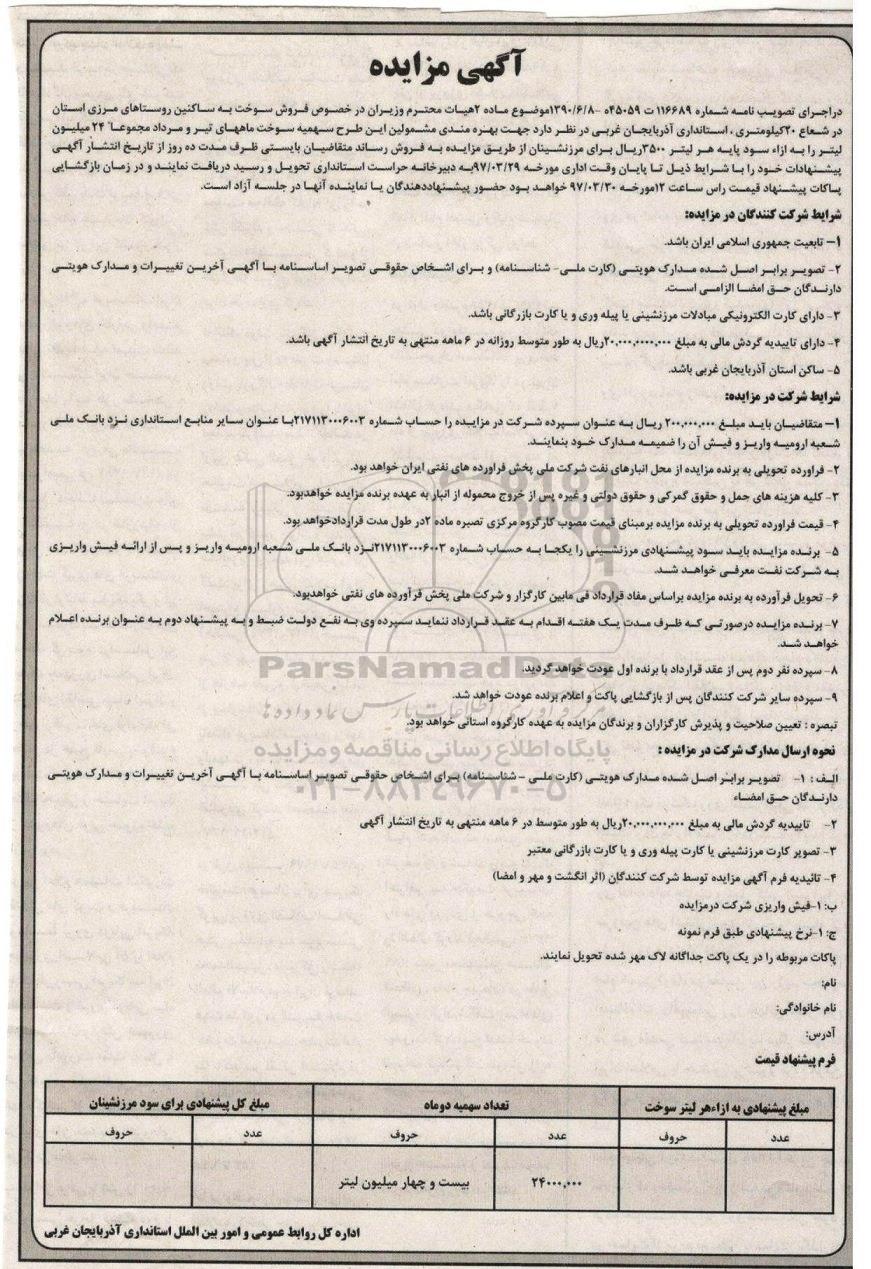 آگهی مزایده
دراجرای تصویب نامه شماره ۱۱۶۶۸۹ ت ۴۵۰۵۹ه -۱۳۹۰/۶/۸موضوع ماده ۲هیات محترم وزیران در خصوص فروش سوخت به ساکنین روستاهای مرزی استان
در شعاع ۲۰کیلومتری ، استانداری آذربایجان غربی در نظر دارد جهت بهره مندی مشمولین این طرح سهمیه سوخت ماههای تیر و مرداد مجموعا" ۲۴ میلیون
لیتر را به ازاء سود پایه هر لیتر ۳۵۰۰ریال برای مرزنشینان از طریق مزایده به فروش رساند متقاضیان بایستی ظرف مدت ده روز از تاریخ انتشار آگهی
پیشنهادات خود را با شرایط ذیل تا پایان وقت اداری مورخه ۹۷/۰۳/۲۹به دبیرخانه حراست استانداری تحویل و رسید دریافت نمایند و در زمان بازگشایی
پاکات پیشنهاد قیمت راس ساعت ۱۲مورخه ۹۷/۰۳/۳۰ خواهد بود حضور پیشنهاددهندگان یا نماینده آنها در جلسه آزاد است.
شرایط شرکت کنندگان در مزایده:
۱- تابعیت جمهوری اسلامی ایران باشد.
۲- تصویر برابر اصل شده مدارک هویتی (کارت ملی- شناسنامه) و برای اشخاص حقوقی تصویر اساسنامه با آگهی آخرین تغییرات و مدارک هویتی
دارندگان حق امضا الزامی است.
۳- دارای کارت الکترونیکی مبادلات مرزنشینی یا پیله وری و یا کارت بازرگانی باشد.
۴- دارای تاییدیه گردش مالی به مبلغ ۲۰,۰۰۰,۰۰۰,۰۰۰ریال به طور متوسط روزانه در ۶ ماهه منتهی به تاریخ انتشار آگهی باشد.
۵- ساکن استان آذربایجان غربی باشد.
شرایط شرکت در مزایده:
۱- متقاضیان باید مبلغ ۲۰۰,۰۰۰,۰۰۰ ریال به عنوان سپرده شرکت در مزایده را حساب شماره ۲۱۷۱۱۳۰۰۰۶۰۰۳با عنوان سایر منابع استانداری نزد بانک ملی
شعبه ارومیه واریز و فیش آن را ضمیمه مدارک خود بنمایند.
۲- فراورده تحویلی به برنده مزایده از محل انبارهای نفت شرکت ملی پخش فراورده های نفتی ایران خواهد بود.
۳- کلیه هزینه های حمل و حقوق گمرکی و حقوق دولتی و غیره پس از خروج محموله از انبار به عهده برنده مزایده خواهدبود.
۴- قیمت فراورده تحویلی به برنده مزایده برمبنای قیمت مصوب کارگروه مرکزی تصبره ماده ۲در طول مدت قراردادخواهد بود.
۵- برنده مزایده باید سود پیشنهادی مرزنشینی را یکجا به حساب شماره ۲۱۷۱۱۳۰۰۰۶۰۰۳نزد بانک ملی شعبه ارومیه واریز و پس از ارائه فیش واریزی
به شرکت نفت معرفی خواهد شد.
۶- تحویل فرآورده به برنده مزایده براساس مفاد قرارداد فی مابین کارگزار و شرکت ملی پخش فرآورده های نفتی خواهدبود.
۷- برنده مزایده درصورتی که ظرف مدت یک هفته اقدام به عقد قرارداد ننماید سپرده وی به نفع دولت ضبط و به پیشنهاد دوم به عنوان برنده اعلام
خواهد شد.
۸- سپرده نفر دوم پس از عقد قرارداد با برنده اول عودت خواهد گردید.
ParsNamadData
۹- سپرده سایر شرکت کنندگان پس از بازگشایی پاکت و اعلام برنده عودت خواهد شد.
تبصره : تعیین صلاحیت و پذیرش کارگزاران و برندگان مزایده به عهده کارگروه استانی خواهد بود.
پایگاه اطلاع رسانی مناقصه و مزایده
نحوه ارسال مدارک شرکت در مزایده :
الف : ۱- تصویر برابر اصل شده مدارک هویتی (کارت ملی - شناسنامه) برای اشخاص حقوقی تصویر اساسنامه با آگهی آخرین تغییرات و مدارک هویتی
دارندگان حق امضاء
۰۲۱-۸۸۳۴۹۶۷۰-۵
۲- تاییدیه گردش مالی به مبلغ ۲۰,۰۰۰,۰۰۰,۰۰۰ریال به طور متوسط در ۶ ماهه منتهی به تاریخ انتشار آگهی
۳- تصویر کارت مرزنشینی یا کارت پیله وری و یا کارت بازرگانی معتبر
۴- تائیدیه فرم آگهی مزایده توسط شرکت کنندگان (اثر انگشت و مهر و امضا)
ب: ۱-فیش واریزی شرکت درمزایده
ج: ۱-نرخ پیشنهادی طبق فرم نمونه
پاکات مربوطه را در یک پاکت جداگانه لاک مهر شده تحویل نمایند.
نام:
نام خانوادگی:
آدرس:
فرم پیشنهاد قیمت
مبلغ پیشنهادی به ازاءهر لیتر سوخت تعداد سهمیه دوماه مبلغ کل پیشنهادی برای سود مرزنشینان
عدد حروف عدد حروف عدد حروف
۲۴۰۰۰,۰۰۰ بیست و چهار میلیون لیتر
اداره کل روابط عمومی و امور بین الملل استانداری آذربایجان غربی